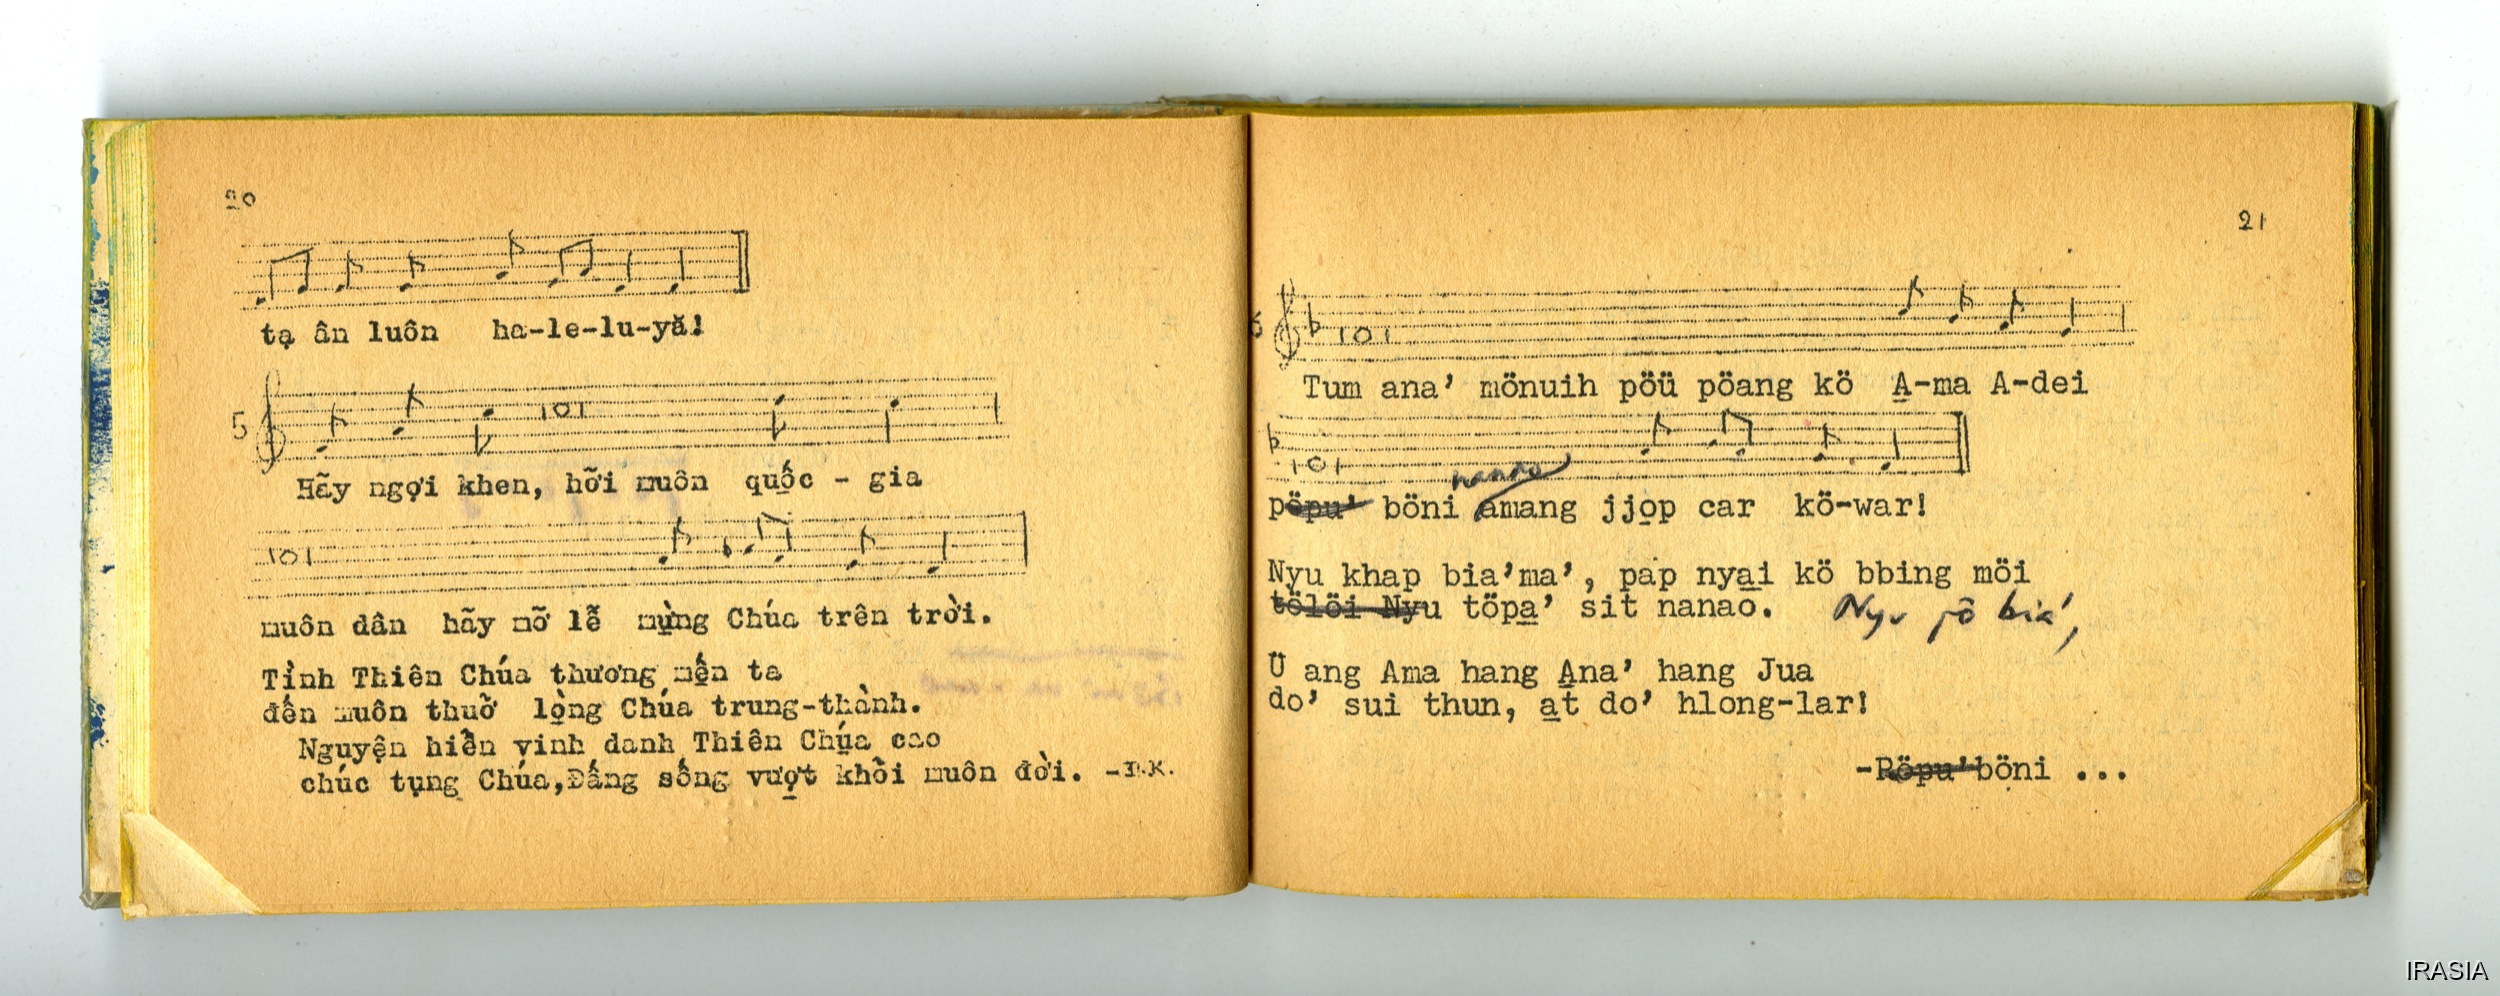 20
tạ ân luôn ha-le-lu-yă!
5
Hãy ngợi khen, hỡi muôn quốc - gia
muôn dân hãy mở lễ mừng Chúa trên trời.
Tình Thiên Chúa thương mến ta
đến muôn thuở lòng Chúa trung-thành.
Nguyện hiển vinh danh Thiên Chúa cao
chúc tụng Chúa, Đấng sống vượt khỏi muôn đời. -Đ.K.
21
6
Tum ana' mönuih pöü pöang kö A-ma A-dei
nanao
pöpu' böni amang jjop car kö-war!
Nyu khap bia'ma', pap nyai kö bbing möi
tölöi Nyu töpa' sit nanao. Nyu pô bia',
Ü ang Ama hang Ana' hang Jua
do' sui thun, at do' hlong-lar!
-Pöpu' böni ...
IRASIA